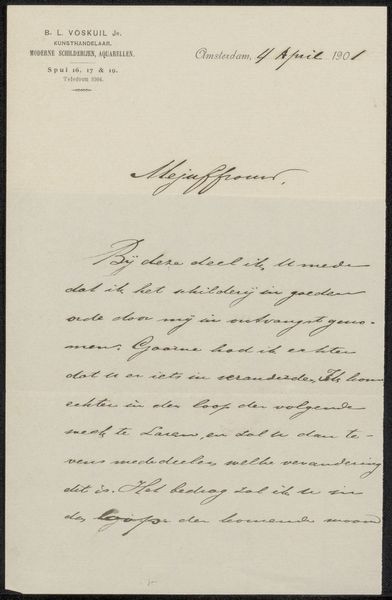 B. L. VOSKUIL Jr.
KUNSTHANDELAAR.
MODERNE SCHILDERIJEN, AQUARELLEN.
Spui 16, 17 & 19.
Telefoon 5304.
Amsterdam, 4 April 1901
Mejuffrouw,
Bij deze deel ik U mede
dat ik het schilderij in goeden
orde door mij in ontvangst geno-
men. Gaarne had ik echter
dat U er iets in veranderde. Ik kom
echter in den loop der volgende
week te Laren, en zal U dan te-
vens mededeelen welke verandering
dit is. Het bedrag zal ik U in
de loop der komende maand